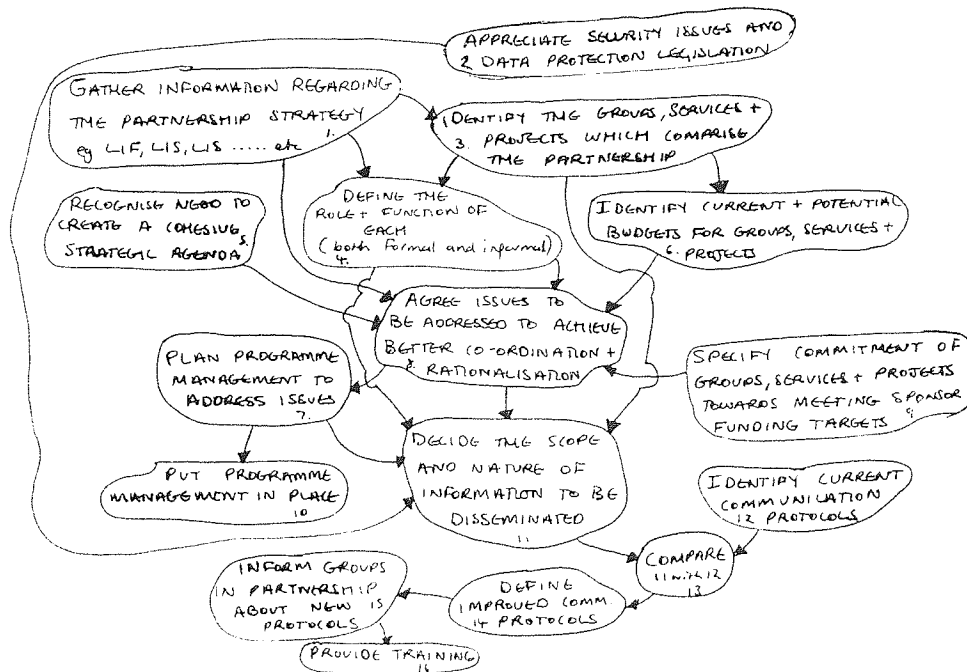 APPRECIATE SECURITY ISSUES AND
2 DATA PROTECTION LEGISLATION
GATHER INFORMATION REGARDING
THE PARTNERSHIP STRATEGY
1.
eg LIF, LIS, LIS ..... etc
IDENTIFY THE GROUPS, SERVICES +
3. PROJECTS WHICH COMPRISE
THE PARTNERSHIP
RECOGNISE NEED TO
CREATE A COHESIVE
5.
STRATEGIC AGENDA
DEFINE THE
ROLE + FUNCTION OF
EACH
(both formal and informal)
4.
IDENTIFY CURRENT + POTENTIAL
BUDGETS FOR GROUPS, SERVICES +
6. PROJECTS
AGREE ISSUES TO
BE ADDRESSED TO ACHIEVE
BETTER CO-ORDINATION +
8. RATIONALISATION
PLAN PROGRAMME
MANAGEMENT TO
ADDRESS ISSUES
7.
SPECIFY COMMITMENT OF
GROUPS, SERVICES + PROJECTS
TOWARDS MEETING SPONSOR
FUNDING TARGETS 9
PUT PROGRAMME
MANAGEMENT IN PLACE
10
DECIDE THE SCOPE
AND NATURE OF
INFORMATION TO BE
DISSEMINATED
11
IDENTIFY CURRENT
COMMUNICATION
12 PROTOCOLS
COMPARE
11 with 12
13
DEFINE
IMPROVED COMM.
14 PROTOCOLS
INFORM GROUPS
IN PARTNERSHIP
ABOUT NEW 15
PROTOCOLS
PROVIDE TRAINING
16